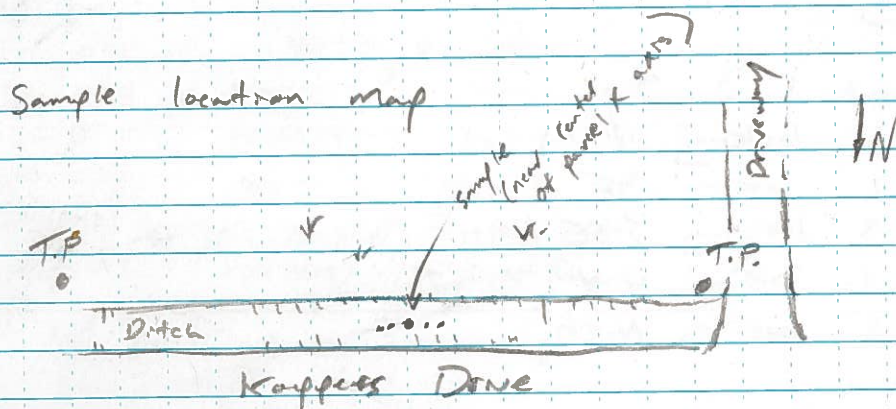 Sample location map
sample
(near center
of parcel
Driveway
N
T.P.
T.P.
Ditch
Koppers Drive